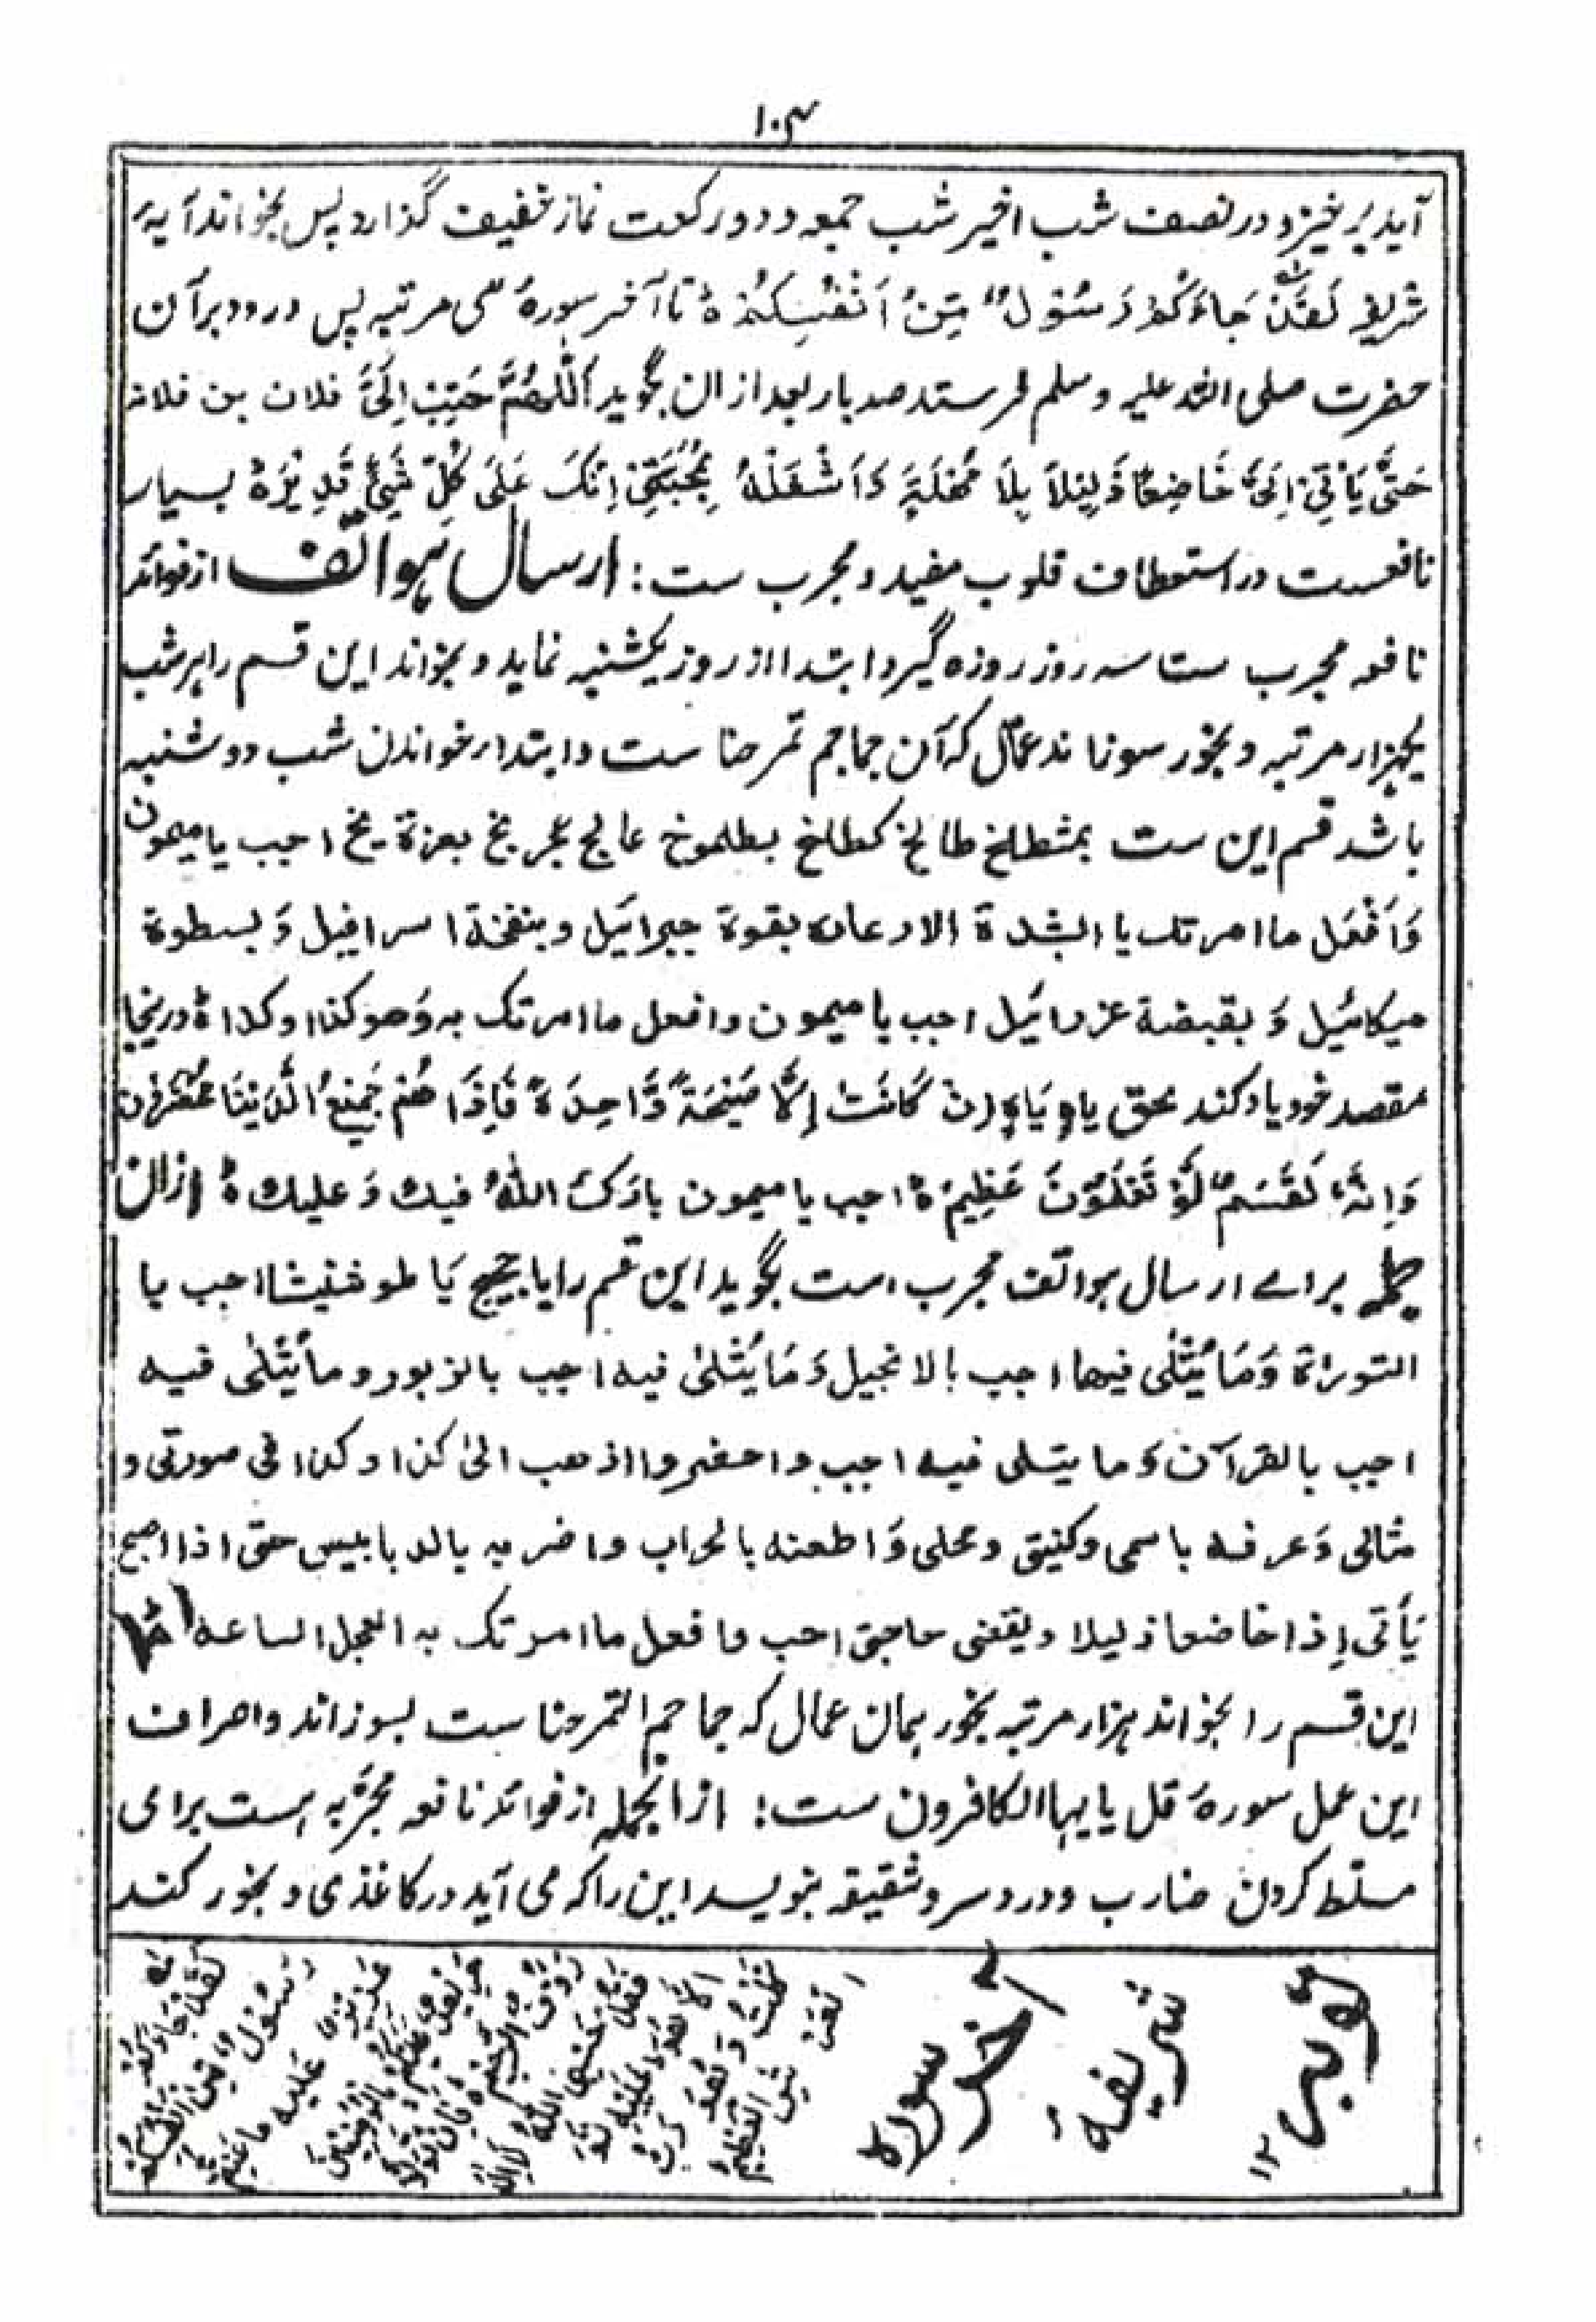 ۱۰۳
آید برخیزد در نصف شب اخیر شب جمعه و دو رکعت نماز خفیف گذارد پس بخواند آیهٔ
شریفه لَقَدْ جَاءَكُمْ رَسُوْلٌ مِّنْ اَنْفُسِكُمْ ہ تا آخر سورهٔ سی مرتبه پس درود بر آن
حضرت صلی الله علیه وسلم فرستد صد بار بعد ازان بگوید اَللّٰهُمَّ حَبِّبْ اِلَیَّ فلان بن فلانہ
حَتّٰی یَأْتِیَ اِلَیَّ خَاضِعًا ذَلِیْلاً بِلاَ مُهْلَةٍ وَاَشْغَلْهُ بِمُحَبَّتِیْ اِنَّكَ عَلٰی كُلِّ شَیْءٍ قَدِیْرٌ ہ بسیار
نافعست در استعطاف قلوب مفید و مجرب ست : ارسال ہواتف از فوائد
نافعه مجرب ست سه روز روزه گیرد ابتدا از روز یکشنبه نماید و بخواند این قسم را ہر شب
یکہزار مرتبه و بخور سوزاند عمّال که آن جماجم تمر حنا ست و ابتدار خواندن شب دوشنبه
باشد قسم این ست بمثطلخ طالخ كطالخ بطلموخ عالج یخ بعزة یخ اجب یا میمون
وَاَفْعَل ما امرتك یا بقوة جبرائیل وبنفخة اسرافیل وَ بسطوة
میکائیل وَ بقبضة عزرائیل اجب یا میمون وافعل ما امرتك به وَهو كذا وكذا ہ درینجا
مقصد خود یاد کند بحق یاہٍ یَاہٍ اِن كَانَتْ اِلَّا صَیْحَةً وَّاحِدَةً فَاِذَا هُمْ جَمِیْعٌ لَّدَیْنَا مُحْضَرُوْن
وَاِنَّهٗ لَقَسَمٌ لَوْ تَعْلَمُوْنَ عَظِیْمٌ ہ اجب یا میمون بارَكَ اللهُ فیك وَ علیك ہ ازان
جمله برائے ارسال ہواتف مجرب است بگوید این قسم را یا یَا اجب یا
التوراة وَمَا یُتْلٰی فیها اجب بالانجیل وَمَا یُتْلٰی فیه اجب بالزبور و ما یُتْلٰی فیه
اجب بالقرآن وَ ما یتلی فیه اجب واحضر واذهب الیٰ كذا وكذا فی صورتی و
مثالی وَعرفه باسمی وكنیتی ومحلی وَاطعنه بالحراب واضربه بالدبابیس حتی اذا اصبح
یَأتی اِذا خاضعا ذلیلا ویقضی حاجتی اجب وافعل ما امرتك به العجل الساعه
این قسم را بخواند ہزار مرتبه بخور ہمان عمال که جماجم التمر حنا ست بسوزاند و اصراف
این عمل سورهٔ قل یایہا الکافرون ست : ازانجمله از فوائد نافعه مجرّبه است برای
مسلط کردن ضارب و درد سر و شقیقه بنویسد این را که می آید در کاغذی و بخور کند
لَقَدْ جَاءَكُمْ رَسُوْلٌ مِّنْ اَنْفُسِكُمْ
عَزِیْزٌ عَلَیْهِ مَا عَنِتُّمْ
حَرِیْصٌ عَلَیْكُمْ بِالْمُؤْمِنِیْنَ
رَؤُفٌ رَّحِیْمٌ ہ فَاِنْ تَوَلَّوْا
فَقُلْ حَسْبِیَ اللهُ لَا اِلٰهَ
اِلَّا هُوَ عَلَیْهِ تَوَ
كَّلْتُ وَهُوَ رَبُّ
الْعَرْشِ الْعَظِیْمِ
آخر سورہ
شریفہ
۱۲